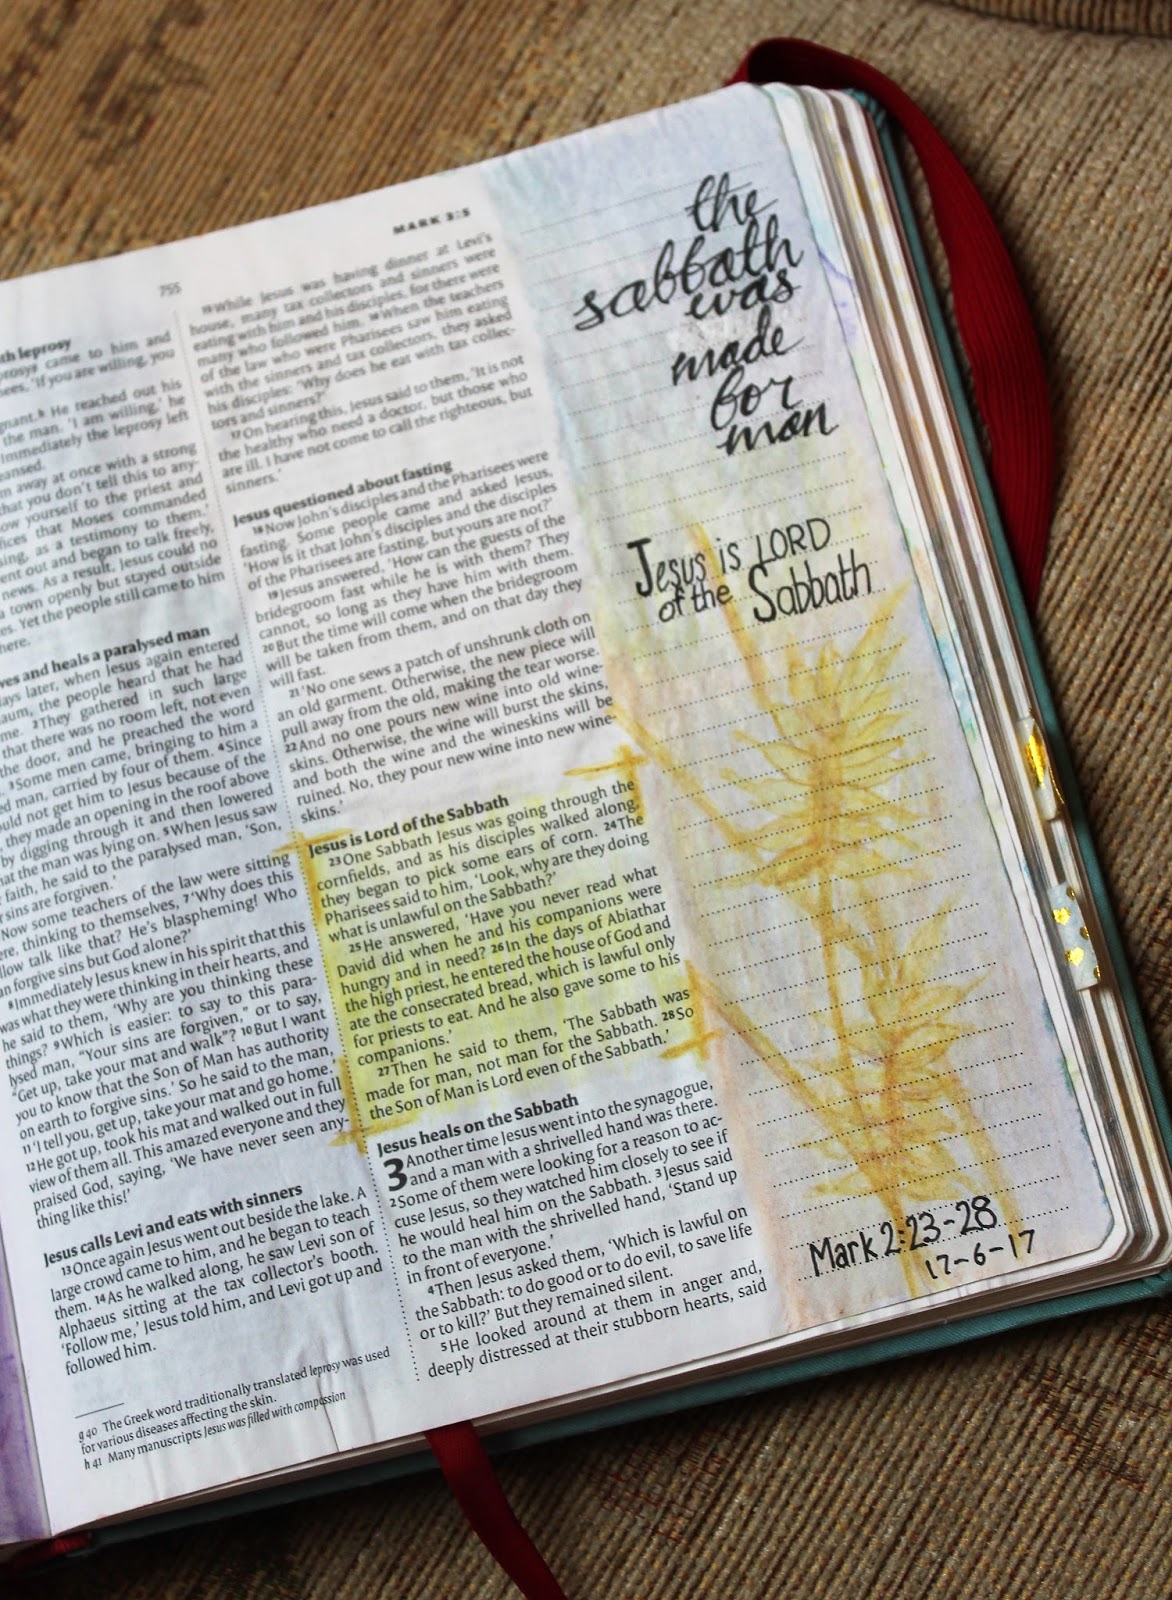 MARK 3:5
755
th leprosy
prosy came to him and
ees, 'If you are willing, you
gnant.h He reached out his
the man. 'I am willing,' he
Immediately the leprosy left
eansed.
m away at once with a strong
that you don't tell this to any-
ow yourself to the priest and
fices that Moses commanded
sing, as a testimony to them.'
ent out and began to talk freely,
news. As a result, Jesus could no
a town openly but stayed outside
es. Yet the people still came to him
here.
ves and heals a paralysed man
days later, when Jesus again entered
aum, the people heard that he had
me. 2They gathered in such large
that there was no room left, not even
the door, and he preached the word
3Some men came, bringing to him a
ed man, carried by four of them. 4Since
ould not get him to Jesus because of the
they made an opening in the roof above
by digging through it and then lowered
hat the man was lying on. 5When Jesus saw
faith, he said to the paralysed man, 'Son,
sins are forgiven.'
Now some teachers of the law were sitting
ere, thinking to themselves, 7'Why does this
llow talk like that? He's blaspheming! Who
an forgive sins but God alone?'
8Immediately Jesus knew in his spirit that this
was what they were thinking in their hearts, and
he said to them, 'Why are you thinking these
things? 9Which is easier: to say to this para-
lysed man, "Your sins are forgiven," or to say,
"Get up, take your mat and walk"? 10But I want
you to know that the Son of Man has authority
on earth to forgive sins.' So he said to the man,
11'I tell you, get up, take your mat and go home.'
12He got up, took his mat and walked out in full
view of them all. This amazed everyone and they
praised God, saying, 'We have never seen any-
thing like this!'
Jesus calls Levi and eats with sinners
13Once again Jesus went out beside the lake. A
large crowd came to him, and he began to teach
them. 14As he walked along, he saw Levi son of
Alphaeus sitting at the tax collector's booth.
'Follow me,' Jesus told him, and Levi got up and
followed him.
g 40 The Greek word traditionally translated leprosy was used
for various diseases affecting the skin.
h 41 Many manuscripts Jesus was filled with compassion
15While Jesus was having dinner at Levi's
house, many tax collectors and sinners were
eating with him and his disciples, for there were
many who followed him. 16When the teachers
of the law who were Pharisees saw him eating
with the sinners and tax collectors, they asked
his disciples: 'Why does he eat with tax collec-
tors and sinners?'
17On hearing this, Jesus said to them, 'It is not
the healthy who need a doctor, but those who
are ill. I have not come to call the righteous, but
sinners.'
Jesus questioned about fasting
18Now John's disciples and the Pharisees were
fasting. Some people came and asked Jesus,
'How is it that John's disciples and the disciples
of the Pharisees are fasting, but yours are not?'
19Jesus answered, 'How can the guests of the
bridegroom fast while he is with them? They
cannot, so long as they have him with them.
20But the time will come when the bridegroom
will be taken from them, and on that day they
will fast.
21'No one sews a patch of unshrunk cloth on
an old garment. Otherwise, the new piece will
pull away from the old, making the tear worse.
22And no one pours new wine into old wine-
skins. Otherwise, the wine will burst the skins,
and both the wine and the wineskins will be
ruined. No, they pour new wine into new wine-
skins.'
Jesus is Lord of the Sabbath
23One Sabbath Jesus was going through the
cornfields, and as his disciples walked along,
they began to pick some ears of corn. 24The
Pharisees said to him, 'Look, why are they doing
what is unlawful on the Sabbath?'
25He answered, 'Have you never read what
David did when he and his companions were
hungry and in need? 26In the days of Abiathar
the high priest, he entered the house of God and
ate the consecrated bread, which is lawful only
for priests to eat. And he also gave some to his
companions.'
27Then he said to them, 'The Sabbath was
made for man, not man for the Sabbath. 28So
the Son of Man is Lord even of the Sabbath.'
Jesus heals on the Sabbath
3 Another time Jesus went into the synagogue,
and a man with a shrivelled hand was there.
2Some of them were looking for a reason to ac-
cuse Jesus, so they watched him closely to see if
he would heal him on the Sabbath. 3Jesus said
to the man with the shrivelled hand, 'Stand up
in front of everyone.'
4Then Jesus asked them, 'Which is lawful on
the Sabbath: to do good or to do evil, to save life
or to kill?' But they remained silent.
5He looked around at them in anger and,
deeply distressed at their stubborn hearts, said
the
sabbath
was
made
for
man
Jesus is LORD
of the Sabbath
Mark 2:23-28
17-6-17